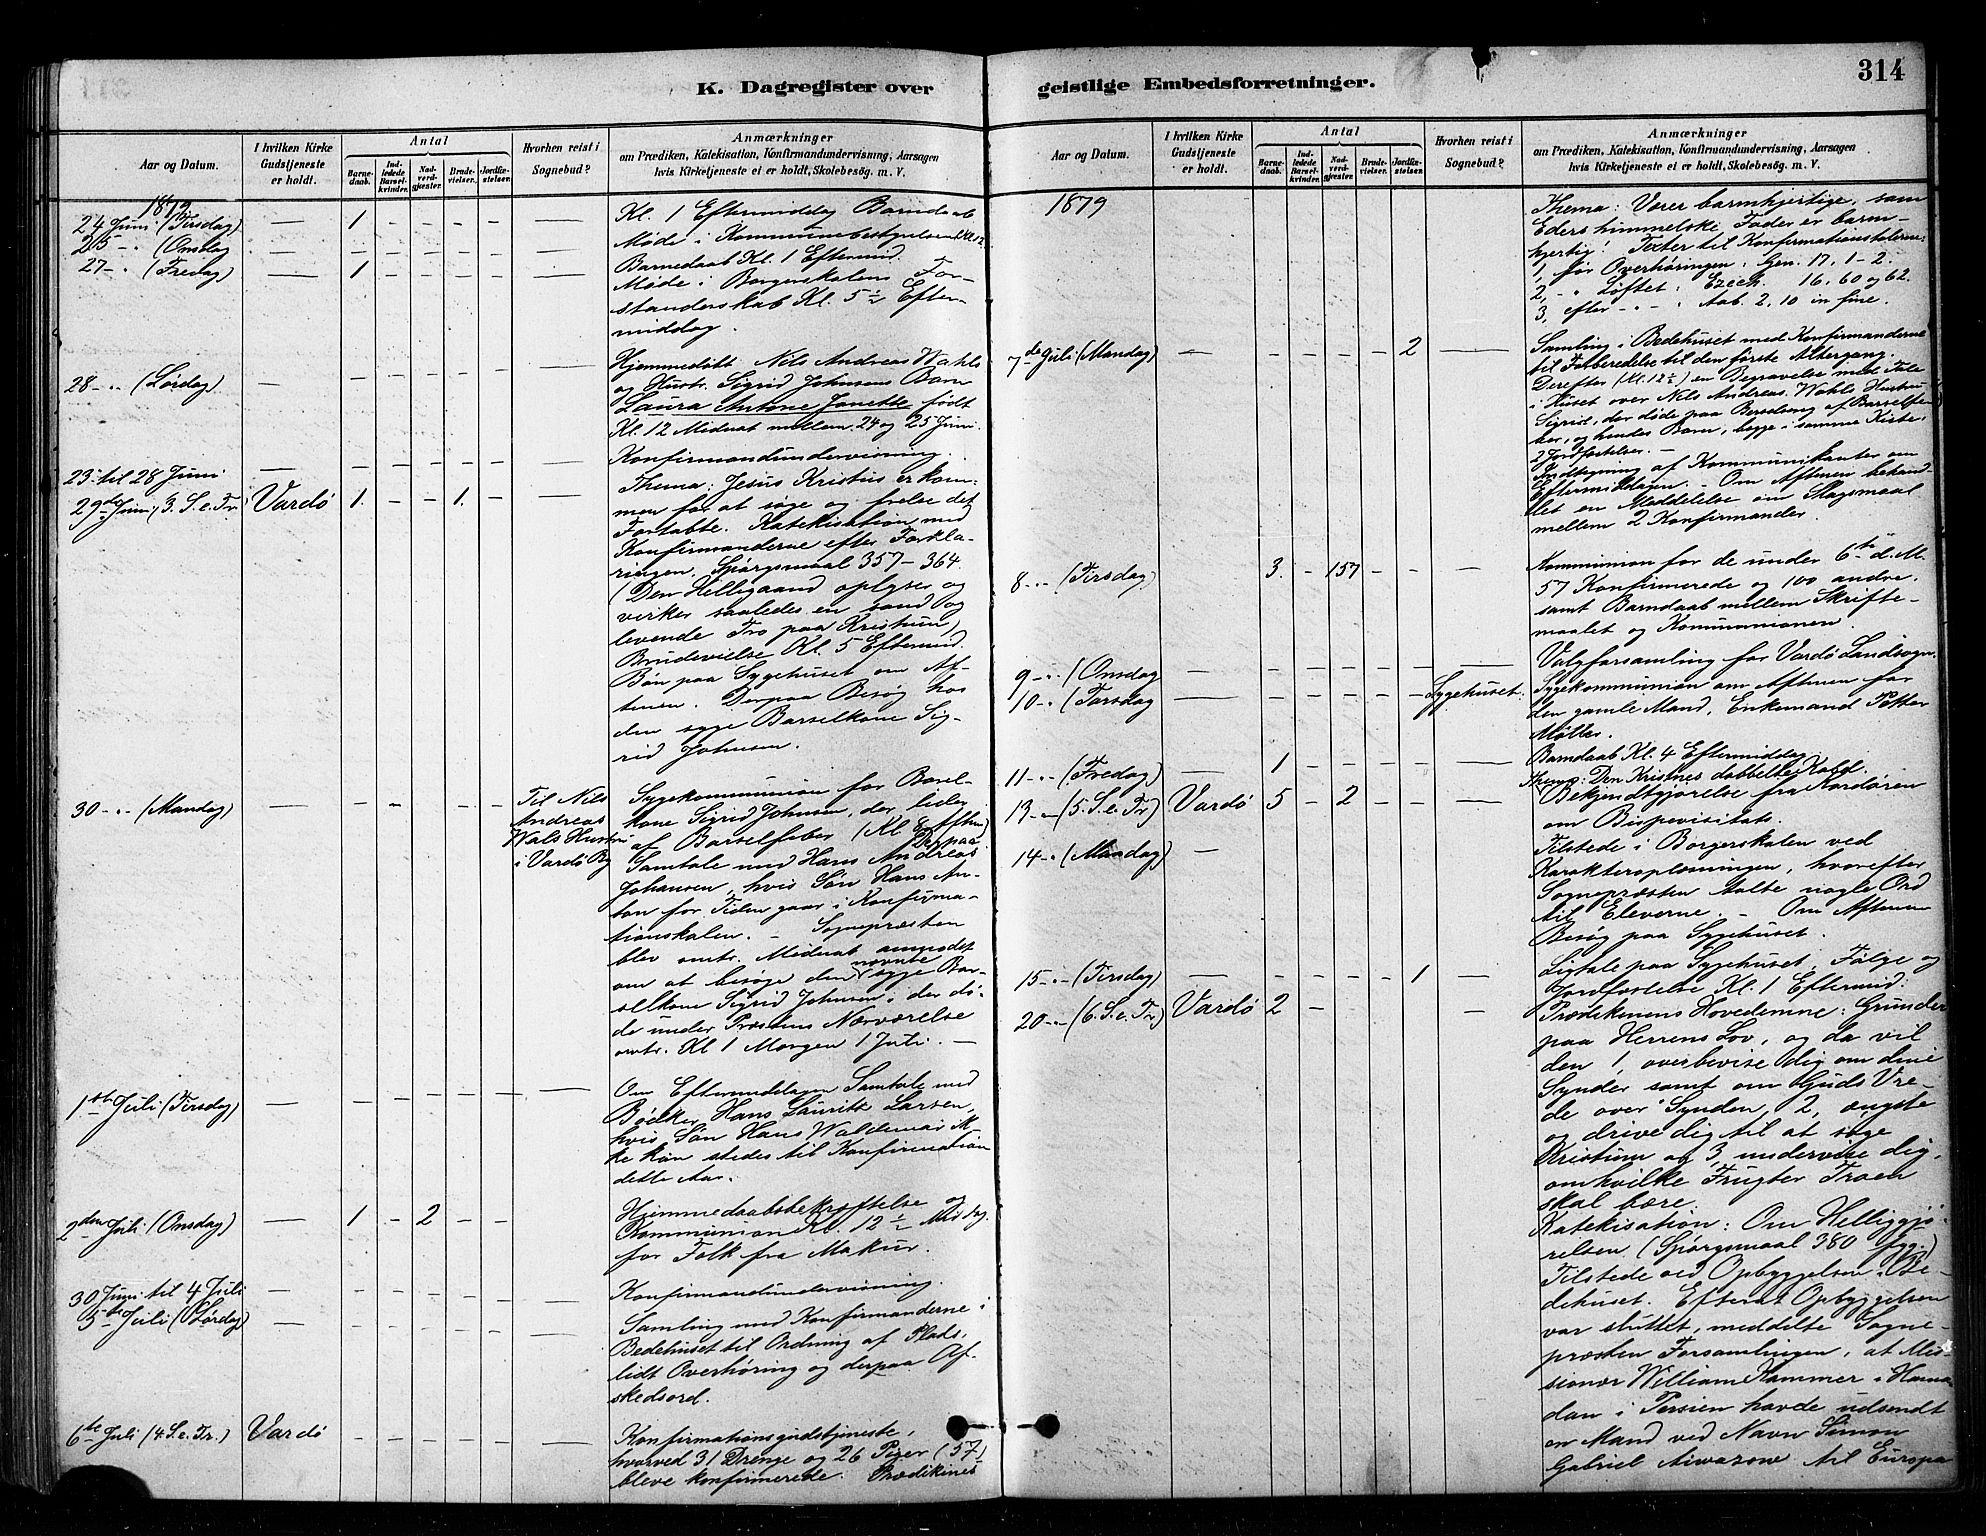 K. Dagregister over
Aar og Datum.
I hvilken Kirke
Gudstjeneste
er holdt.
Antal
Barne-
daab.
Ind-
ledede
Barsel-
kvinder.
Nad-
verd-
gjæster.
Brude-
vielser.
Jordfæ-
stelser.
Hvorhen reist i
Sognebud?
Anmærkninger
om Prædiken, Katekisation, Konfirmandundervisning, Aarsagen
hvis Kirketjeneste ei er holdt, Skolebesøg. m. V.
1879
24 Juni (Tirsdag) — 1 - - - - — Kl. 1 Eftermiddag Barndaab
25 - " (Onsdag — Møde i Kommunebestyrelsen Kl. 12
27 - " (Fredag) — 1 — Barnedaab Kl. 1 Eftermid.
Møde i Borgerskolens For-
standerskab Kl. 5 ½ Efter-
middag.
28 - " (Lørdag) — Hjemmedøbt Nils Andreas Wahls
og Hustr. Sigrid Johnsens Barn
Laura Antone Janette født
Kl. 12 Midnat mellem 24 og 25 Juni.
23 til 28 Juni — Konfirmandundervisning.
29de Juni (3. S. e. Tr. Vardö 1. - - 1. - — Thema: Jesus Kristus er kom-
men for at søge og frelse det
Fortabte. Katekisation med
Konfirmanderne efter Forkla-
ringen. Spørgsmaal 357–364.
(Den Helligaand oplyser og
virker saaledes en sand og
levende Tro paa Kristum)
Brudevielse Kl. 5 Eftermid.
Bøn paa Sygehuset om Af-
tenen. Derpaa Besøg hos
den syge Barselkone Sig-
rid Johnsen.
30 - " (Mandag) — Til Nils
Andreas
Wals Hustru
i Vardö By
Sygekommunion for Barsel-
kone Sigrid Johnsen, der lider
af Barselfeber (Kl. 6 Aften)
Derpaa
Samtale med Hans Andreas
Johansen, hvis Søn Hans An-
ton for Tiden gaar i Konfirma-
tionskolen. — Sognepræsten
blev omtr. Midnat anmodet
om at besøge den nævnte syge Bar-
selkone Sigrid Johnsen, der dø-
de under Præstens Nærværelse
omtr. Kl 1 Morgen 1 Juli. —
1ste Juli (Tirsdag) — — Om Eftermiddagen Samtale med
Bødker Hans Lauritz Larsen,
hvis Søn Hans Waldemar ik-
ke kan stedes til Konfirmation
dette Aar.
2den Juli (Onsdag) — 1 - 2 - - Hjemmedaabsbekræftelse og
Kommunion Kl. 12 ½ Middag.
for Folk fra Makur.
30 Juni til 4 Juli — Konfirmandundervisning.
5te Juli (Lørdag) — Samling med Konfirmanderne i
Bedehuset til Ordning af Plads.
lidt Overhøring og derpaa Af-
skedsord.
6te Juli (4. S. e. Tr.) Vardö — Konfirmationsgudstjeneste,
hvorved 31 Drenge og 26 Piger (57)
bleve konfirmerede. Prædikenes
geistlige Embedsforretninger.
314
Aar og Datum.
I hvilken Kirke
Gudstjeneste
er holdt.
Antal
Barne-
daab.
Ind-
ledede
Barsel-
kvinder.
Nad-
verd-
gjæster.
Brude-
vielser.
Jordfæ-
stelser.
Hvorhen reist i
Sognebud?
Anmærkninger
om Prædiken, Katekisation, Konfirmandundervisning, Aarsagen
hvis Kirketjeneste ei er holdt, Skolebesøg. m. V.
1879
Thema: Værer barmhjertige, som
Eders himmelske Fader er barm-
hjertig! Texter til Konfirmationstalerne:
1, før Overhøringen: Gen. 17. 1-2.
2, - " Løftet: Ezech. 16. 60 og 62.
3, efter - " - Aab. 2. 10 in fine.
7de Juli (Mandag) — - - - - 2 — Samling i Bedehuset med Konfirmanderne
til Forberedelse til den første Altergang.
Derefter (Kl. 12 ½) en Begravelse med Tale
i Huset over Nils Andreas Wahls Hustru
Sigrid, der døde paa af Barselfe-
ber, og hendes Barn, begge i samme Kiste.
2 Jordfæstelser. —
Indtegning af Kommunikanter om
Eftermiddagen. — Om Aftenen behand-
let en Meddelelse om Slagsmaal
mellem 2 Konfirmander.
8 - " (Tirsdag) 3. - 157 - - - Kommunion for de under 6te d. M.
57 Konfirmerede og 100 andre.
samt Barndaab mellem Skrifte-
maalet og Kommunionen.
9 - " (Onsdag — — Valgforsamling for Vardö Landsogn.
10 - " (Torsdag — Sygehuset. Sygekommunion om Aftenen for
den gamle Mand, Enkemand Petter
11 - " (Fredag) — 1 - - - - — Barndaab Kl. 4 Eftermiddag.
13 - " (5. S. e. Tr) Vardö 5 - 2 - - — Thema: Den Kristnes dobbelte Kald.
Bekjendtgjørelse fra Kordören
om Bispevisitats.
14 - " (Mandag) — Tilstede i Borgerskolen ved
Karakteroplæsningen, hvorefter
Sognepræsten talte nogle Ord
til Eleverne. — Om Aftenen
Besøg paa Sygehuset.
15 - " (Tirsdag) — - - - - 1 — Ligtale paa Sygehuset, Følge og
Jordfæstelse Kl. 1 Eftermid:
20 - " (6. S. e. Tr) Vardö 2 - Prædikenens Hovedemne: Grunder
paa Herrens Lov, og da vil
den 1, overbevise dig om dine
Synder samt om Guds Vre-
de over Synden, 2, ængste
og drive dig til at søge
Kristum og 3, undervise dig,
om hvilke Frugter Troen
skal bære.
Katekisation: Om Helliggjö-
relsen. (Spørgsmaal 380 fgg.)
Tilstede ved Opbyggelsen i Be-
dehuset. Efterat Opbyggelsen
var sluttet, meddelte Sogne-
præsten Forsamlingen, at Mis-
sionær William Kammer i Hama-
dan i Persien havde udsendt
en Mand ved Navn Simon
Gabriel Aiwazow til Europa